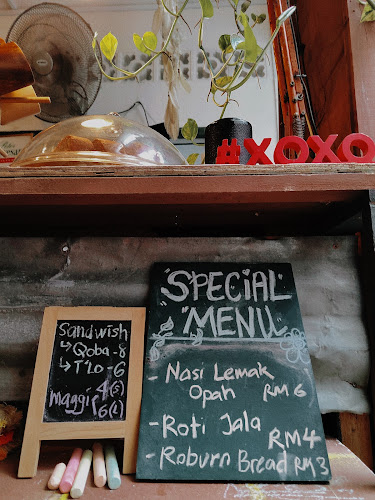 #XOXO
Sandwish
↳ Qoba - 8
↳ T10 - 6
Maggi 4 (S)
6 (L)
"SPECIAL"
MENU
- Nasi Lemak
Opah RM 6
- Roti Jala
RM4
- Roburn Bread RM3